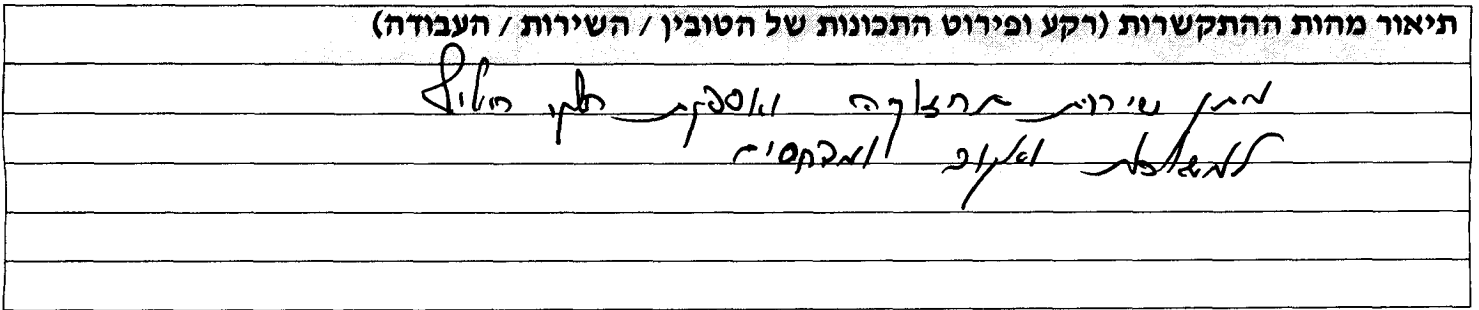 תיאור מהות ההתקשרות (רקע ופירוט התכונות של הטובין / השירות / העבודה)
מתן שירות תחזוקה ואספקת חלקי חילוף
למשאבות ואקום ומדחסים